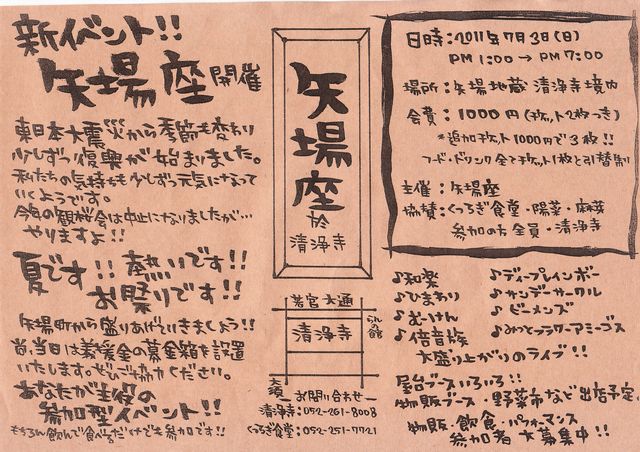 新イベント!!
矢場座開催
東日本大震災から季節も変わり
少しずつ復興が始まりました。
私たちの気持ちも少しずつ元気になって
いくようです。
今年の観桜会は中止になりましたが…
やりますよ!!
夏です!!熱いです!!
お祭りです!!
矢場町から盛りあげていきましょう!!
尚、当日は義援金の募金箱を設置
いたします。ぜひご協力ください。
あなたが主役の
参加型イベント!!
もちろん飲んで食べるだけでも参加です!!
矢場座
於
清浄寺
若宮大通
清浄寺
らんの館
大須
お問い合わせ
清浄寺:052-261-8008
くつろぎ食堂:052-251-7721
日時:2011年7月3日(日)
PM 1:00 → PM 7:00
場所:矢場地蔵 清浄寺境内
会費:1000円(チケット2枚つき)
*追加チケット1000円で3枚!!
フード・ドリンク全てチケット1枚と引替制
主催:矢場座
協賛:くつろぎ食堂・陽菜・麻菜
参加の方全員・清浄寺
♪和楽
♪ひまわり
♪むーけん
♪倍音族
♪ディープレインボー
♪サンデーサークル
♪ビーメンズ
♪みつとっラワーアミーゴス
大盛り上がりのライブ!!
屋台ブースいろいろ!!
物販ブース・野菜市など出店予定。
物販・飲食・パフォーマンス
参加者大募集中!!